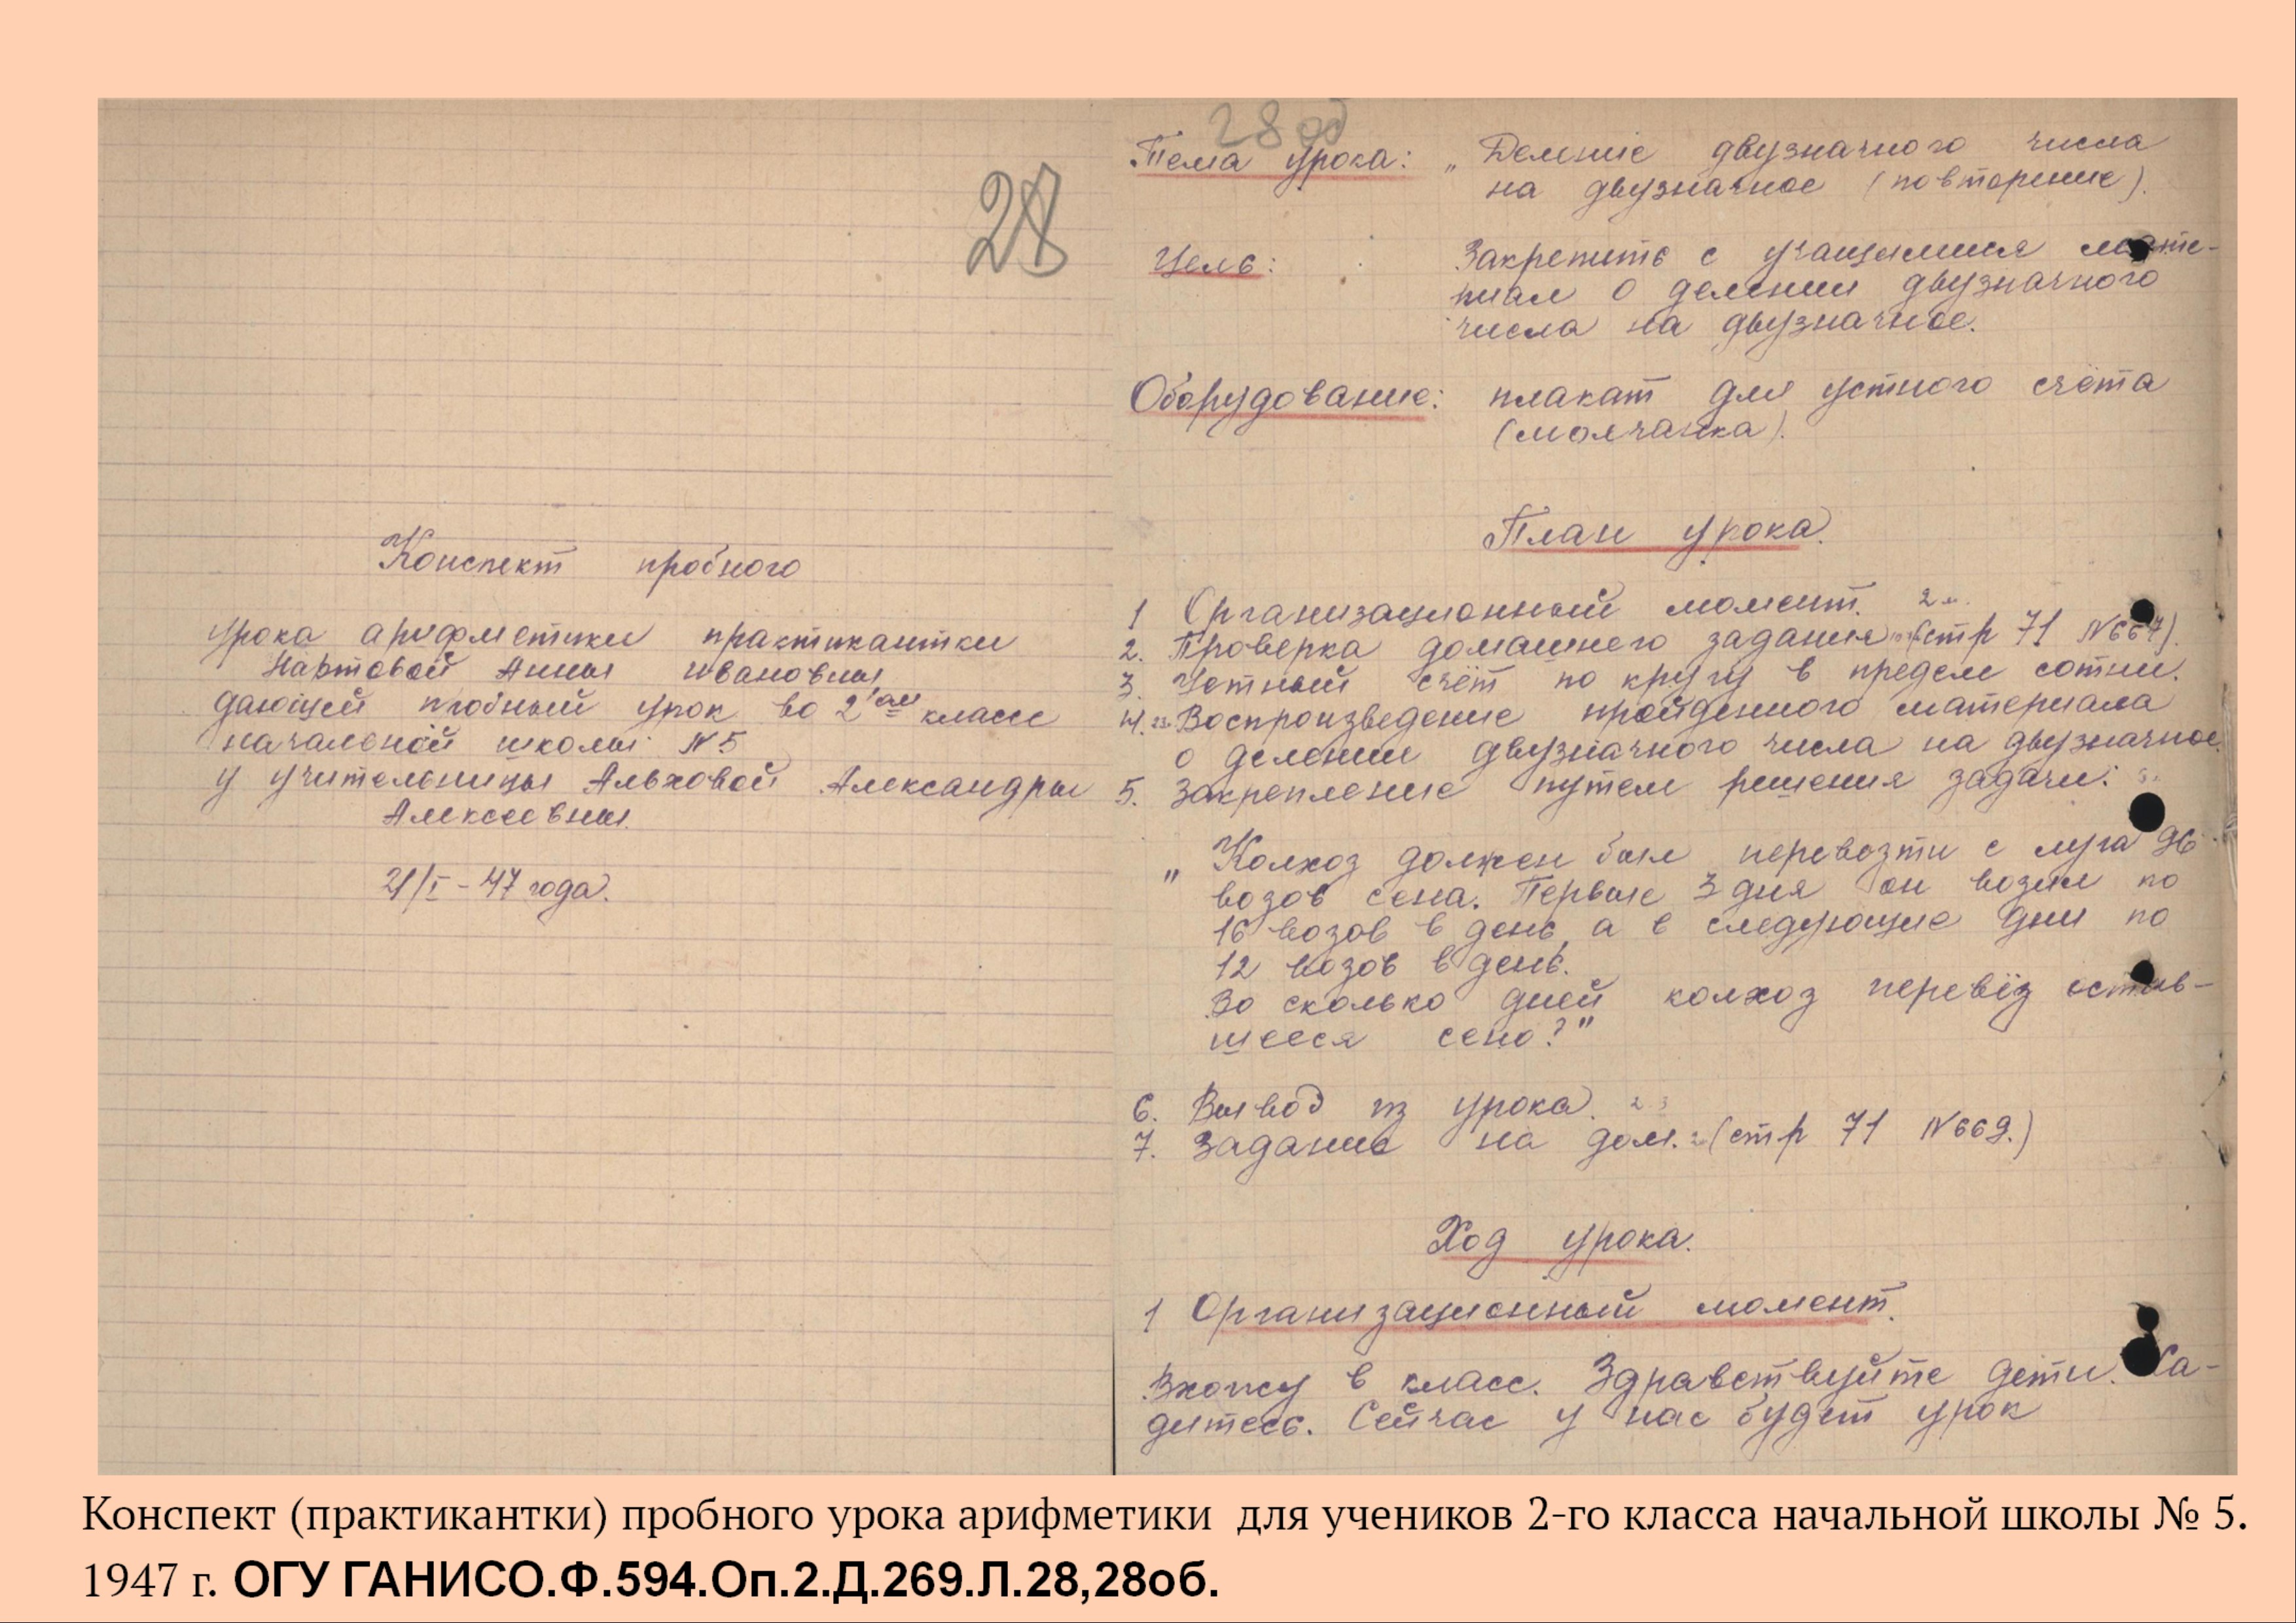 28
Конспект пробного
урока арифметики практикантки
Нартовой Анны Ивановны
дающей пробный урок во 2ом классе
начальной школы №5
у учительницы Альховой Александры
Алексеевны.
21/I - 47 года.
28 об
Тема урока: „Деление двузначного числа
на двузначное (повторение).
Цель: Закрепить с учащимися мате-
риал о делении двузначного
числа на двузначное.
Оборудование: плакат для устного счёта
(молчанка).
План урока.
1 Организационный момент. 2 м.
2. Проверка домашнего задания (стр 71 №667).
3. Устный счёт по кругу в предел сотни.
4. Воспроизведение пройденного материала
о делении двузначного числа на двузначное.
5. Закрепление путем решения задачи:
„Колхоз должен был перевезти с луга 96
возов сена. Первые 3 дня он возил по
16 возов в день, а в следующие дни по
12 возов в день.
Во сколько дней колхоз перевёз остав-
шееся сено?"
6. Вывод из урока.
7. Задание на дом. (стр 71 №669.)
Ход урока.
1 Организационный момент.
Вхожу в класс. Здравствуйте дети. Са-
дитесь. Сейчас у нас будет урок
Конспект (практикантки) пробного урока арифметики для учеников 2-го класса начальной школы № 5.
1947 г. ОГУ ГАНИСО.Ф.594.Оп.2.Д.269.Л.28,28об.